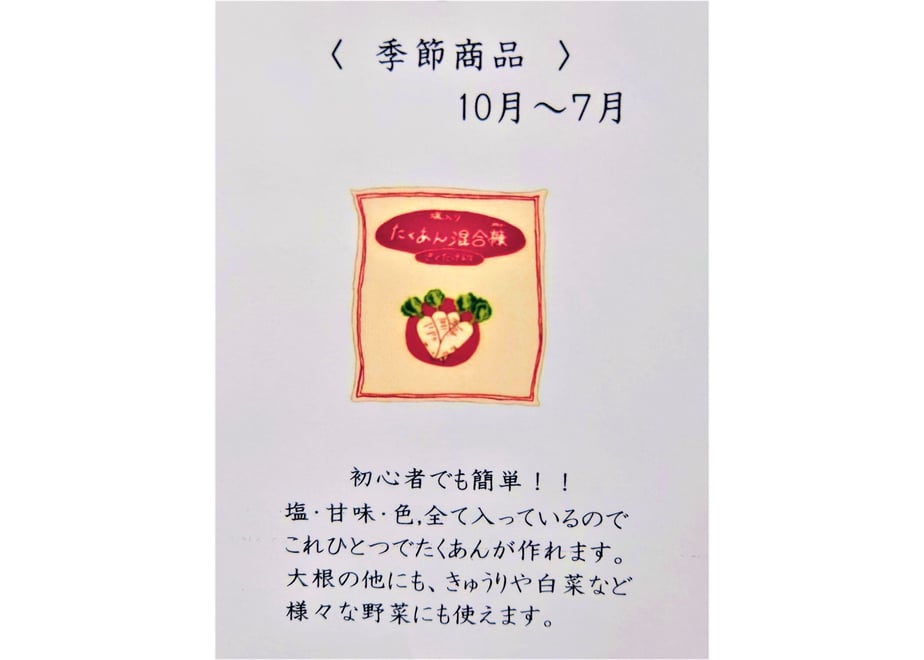 〈 季節商品 〉
10月～7月
塩入り
たくあん混合糠
初心者でも簡単！！
塩・甘味・色,全て入っているので
これひとつでたくあんが作れます。
大根の他にも、きゅうりや白菜など
様々な野菜にも使えます。